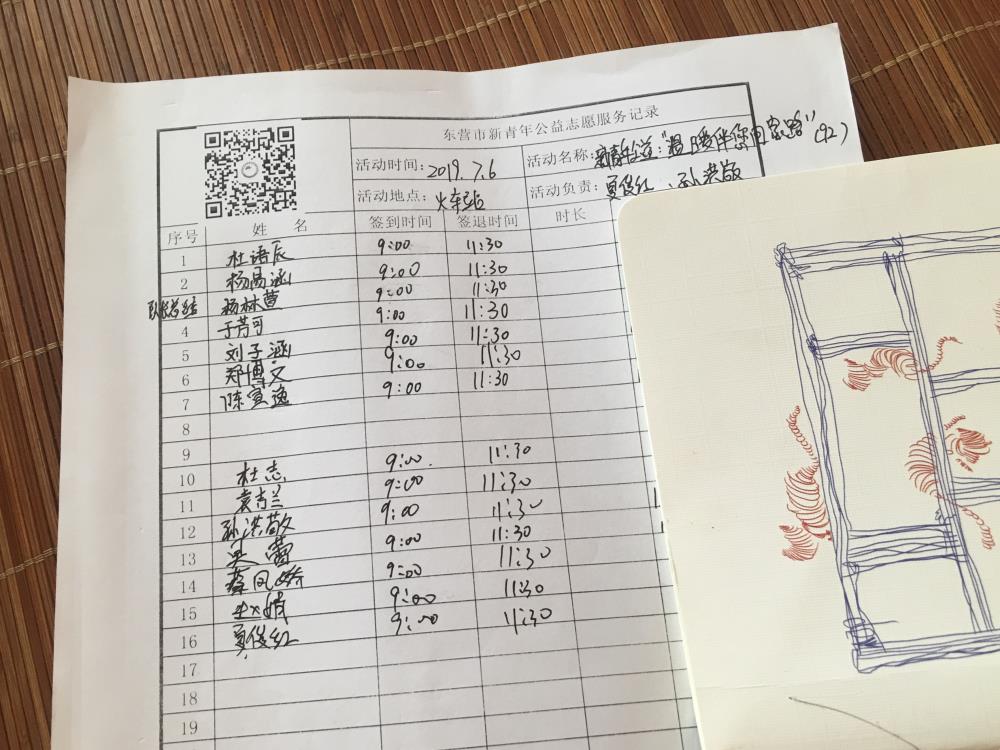 东营市新青年公益志愿服务记录
活动时间: 2019.7.6 活动名称: 新青年公益:"温暖伴您回家路"(92)
活动地点: 火车站 活动负责: 夏俊红、孙洪敏
序号 姓 名 签到时间 签退时间 时长
1 杜语辰 9:00 11:30
2 杨高涵 9:00 11:30
杨林萱 9:00 11:30
4 于芳可 9:00 11:30
5 刘子涵 9:00 11:30
6 郑博文 9:00 11:30
7 陈寅逸 9:00 11:30
8
9
10 杜志 9:00 11:30
11 袁吉兰 9:00 11:30
12 孙洪敏 9:00 11:30
13 吴蕾 9:00 11:30
14 蔡凤娇 9:00 11:30
15 9:00 11:30
16 夏俊红 9:00 11:30
17
18
19